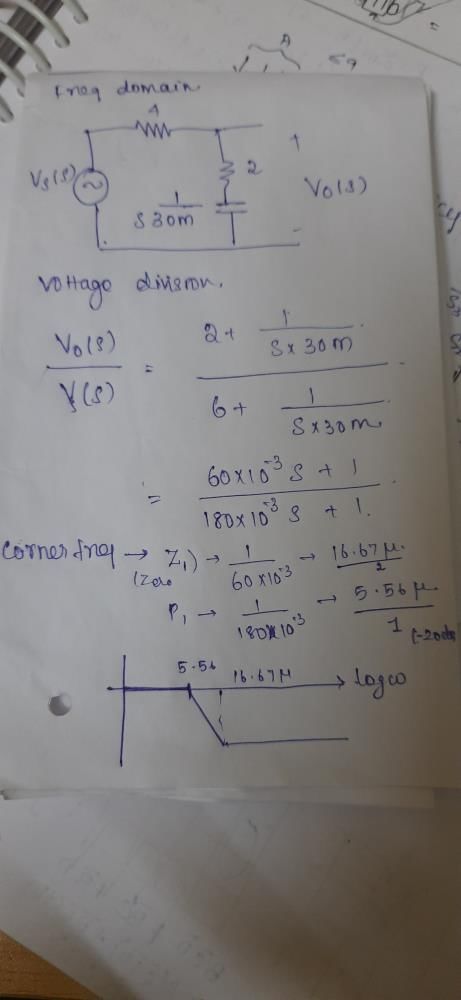 A
Freq domain
4
Vs(s)
2
1
S30m
+
Vo(s)
-
Voltage division.
Vo(s) / V(s) = 2 + 1/(S x 30m) / 6 + 1/(S x 30m)
= 60x10⁻³ S + 1 / 180x10⁻³ S + 1.
Corner freq → Z₁) → 1/60x10⁻³ → 16.67μ
(Zero
2
P₁ → 1/180x10⁻³ → 5.56μ
1 (-20db
5.56 16.67μ → logω